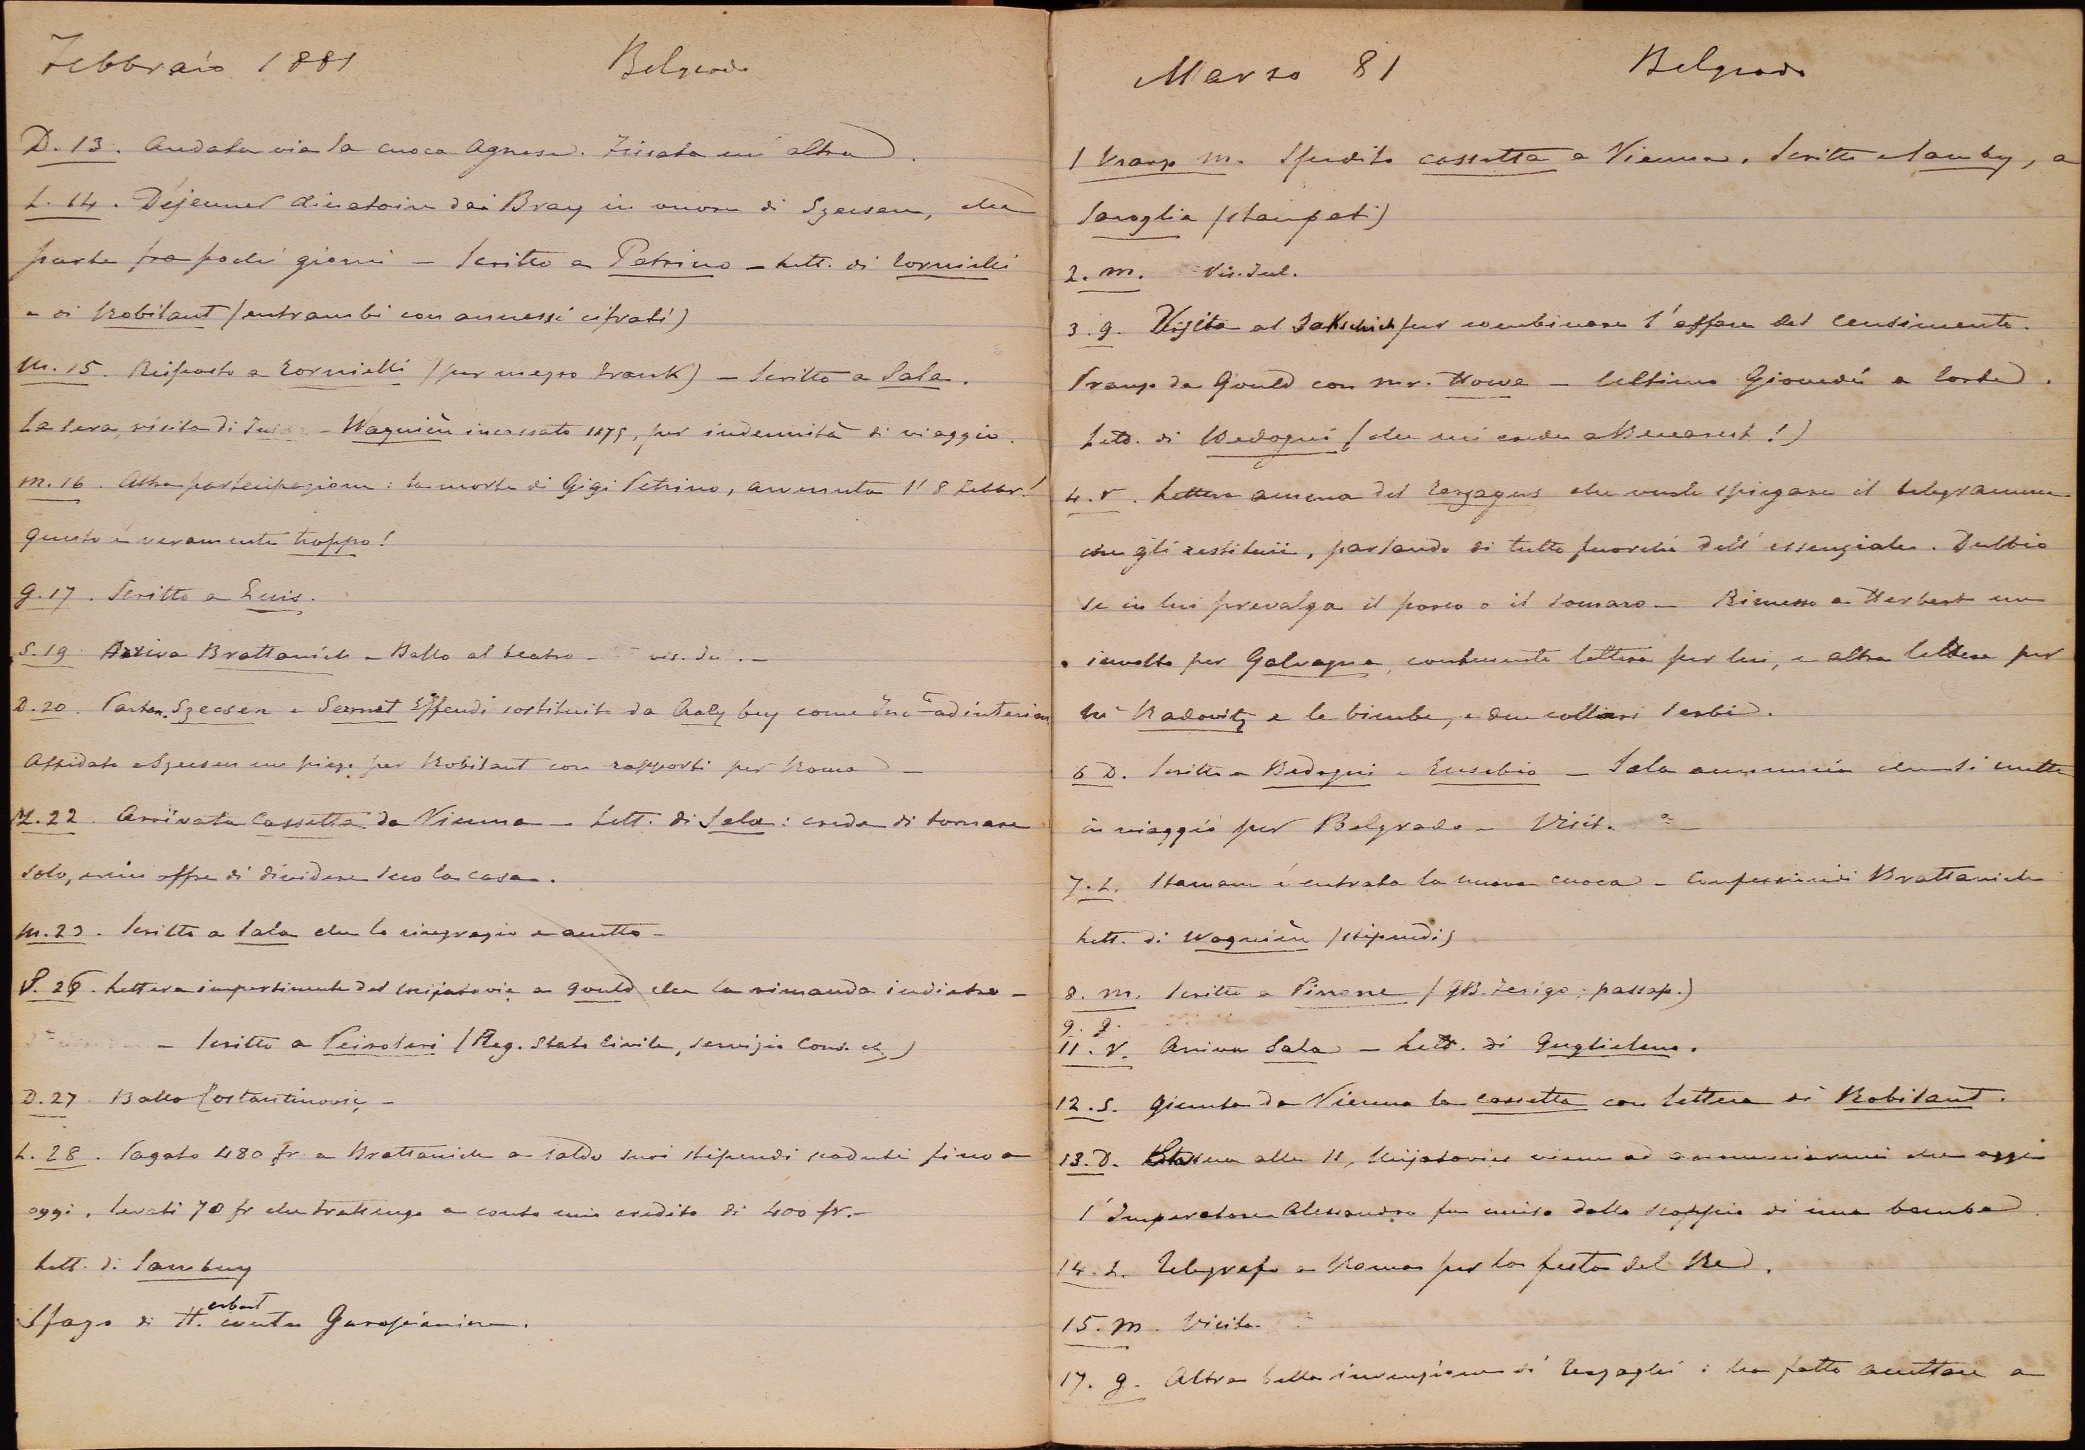 Febbraio 1881 Belgrado
D. 13. Andata via la cuoca Agnese. Fissata un' altra.
L. 14. Déjeuner dinatoire dai Bray in onore di Szecsen, che
parte fra pochi giorni – Scritto a Petrino – Lett. di Tornielli
e di Robilant (entrambi con annessi cifrati)
M. 15. Risposto a Tornielli (per mezzo Frank) – Scritto a Sala.
La sera, visita di – Wagnière incassato 1175, per indennità di viaggio.
M. 16. Altra partecipazione: la morte di Gigi Petrino, avvenuta l' 8 Febbr.!
Questo è veramente troppo!
G. 17. Scritto a Luis.
S. 19 Arriva Brattanich – Ballo al teatro – vis. –
D. 20. Parton. Szecsen e Effendi sostituito da Aaly bey come Inc.to ad interim
Affidato a Szecsen un piego per Robilant con rapporti per Roma –
M. 22. Arrivata Cassetta da Vienna – Lett. di Sala: crede di tornare
solo, e mi offre di dividere seco la casa.
M. 23. Scritto a Sala che lo ringrazio e accetto –
S. 26. Lettera impertinente del Mijatovic a Gould che la rimanda indietro –
– Scritto a Peiroleri (Reg. Stato Civile, servizio Cons. )
D. 27. Ballo Costantinovic –
L. 28. Pagato 480 fr. a Brattanich a saldo suoi stipendi scaduti fino a
oggi, levati 70 fr che trattengo a conto mio credito di 400 fr. –
Lett. di Sambuy
Sfogo di H.erbert contro
Marzo 81 Belgrado
1 m. Spedito cassetta a Vienna. Scritto a Sambuy, a
Saroglia (stampati)
2. m. Vis.
3. g. Visita al Jakschich per combinare l' affare del censimento.
Pranzo da Gould con mr. Howe – Ultimo Giovedì a Corte.
Lett. di Bedogni (che mi crede a Bucarest!)
4. V. Lettera amena del che vuole spiegare il telegramma
che gli restituii, parlando di tutto fuorchè dell' essenziale. Dubbio
se in lui prevalga il porco o il somaro – Rimesso a Herbert un
involto per Galvagna, contenente lettera per lui, e altra lettera per
Radovitz e le bimbe, e due collari Serbi.
6 D. Scritto a Bedogni e Eusebio – Sala annunzia che si mette
in viaggio per Belgrado – Visit. –
7. L. Stamane è entrata la nuova cuoca – Brattanich
Lett. di Wagnière (stipendi)
8. m. Scritto a Pinone (GB. Ferigo: passap.)
9. g.
11. V. Arriva Sala – Lett. di Guglielmo.
12. S. Giunta da Vienna la cassetta con lettera di Robilant.
13. D. alle 11, Mijatovich viene ad annunciarmi che oggi
l' Imperatore Alessandro fu ucciso dallo scoppio di una bomba.
14. L. Telegrafo a Roma per la festa del Re.
15. m. Visita
17. g. Altra bella invenzione di : ha fatto accettare a